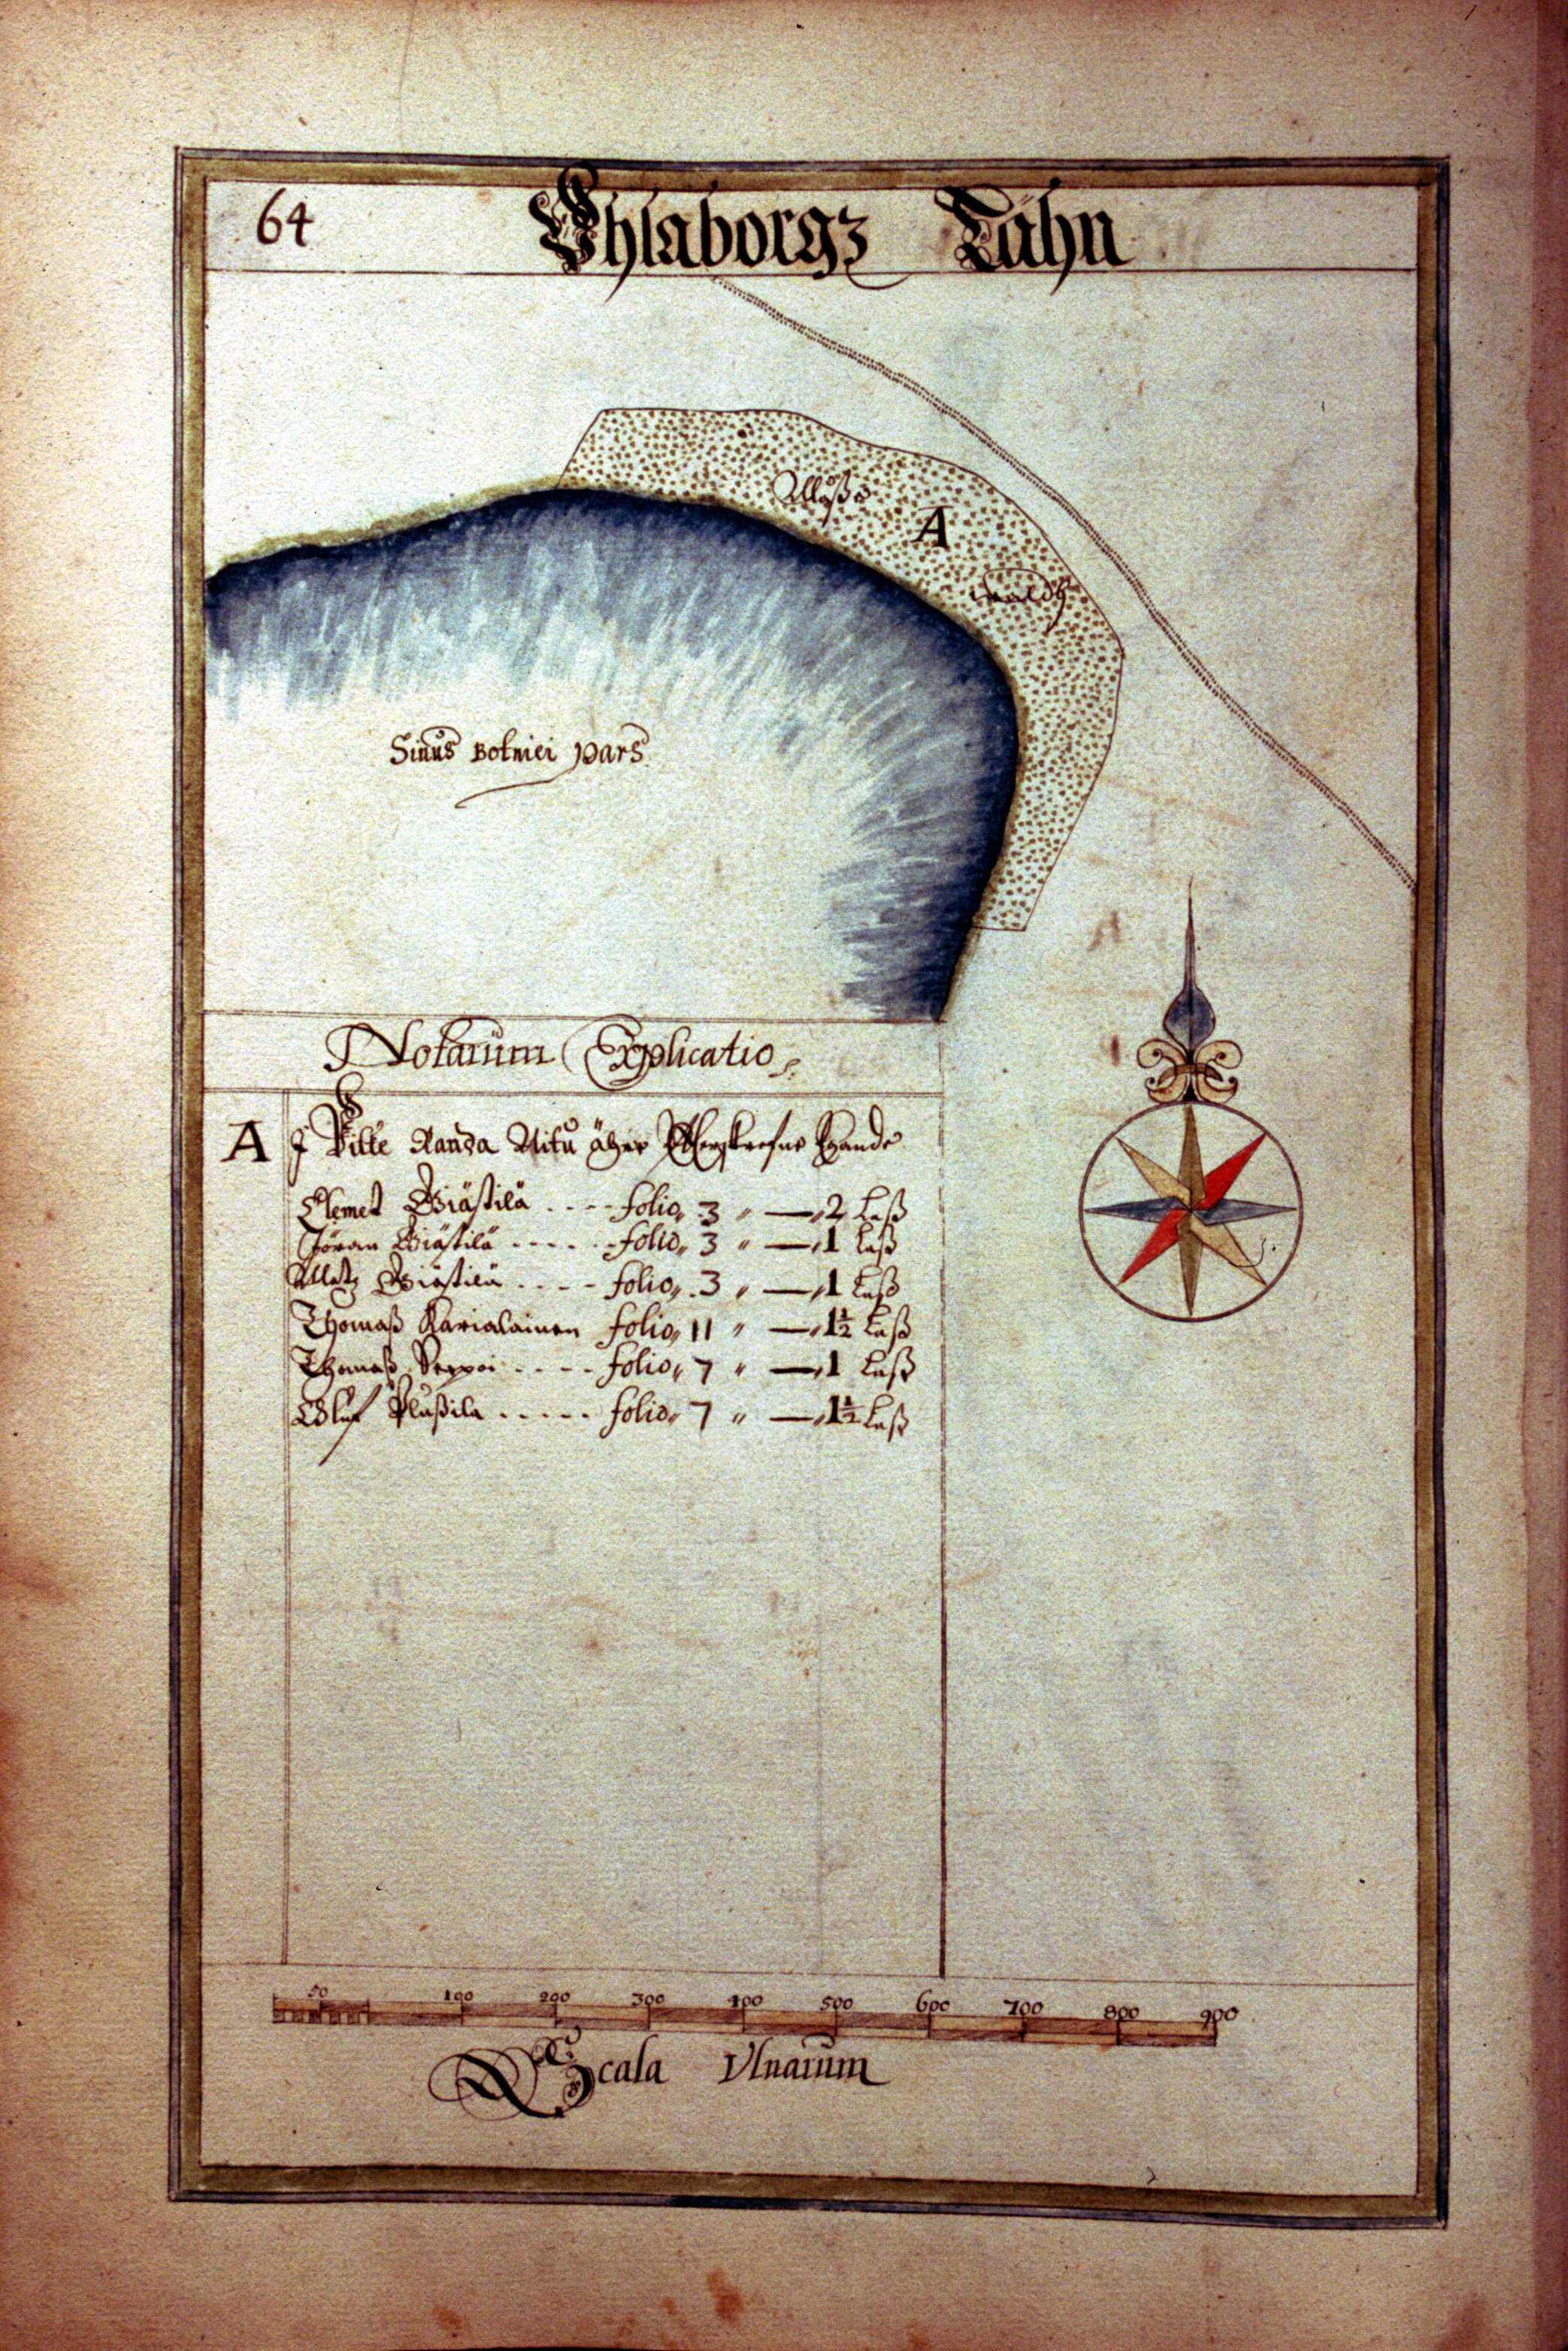 64
Uhlaborgz Lähn
A
Sinus Botniei pars
Notarum Explicatio
A J Wille Randa Nitu äger
Clemet Giästilä . . . . folio, 3 " — " 2 Laß
Jöran Giästilä . . . . . folio, 3 " — " 1 Laß
Matz Giästilä . . . . folio, 3 " — " 1 Laß
Thomaß Karialainen folio, 11 " — " 1½ Laß
Thomaß Seppoi . . . . folio, 7 " — " 1 Laß
Oluf . . . . . folio, 7 " — " 1½ Laß
50 100 200 300 400 500 600 700 800 900
Scala Vlnarum